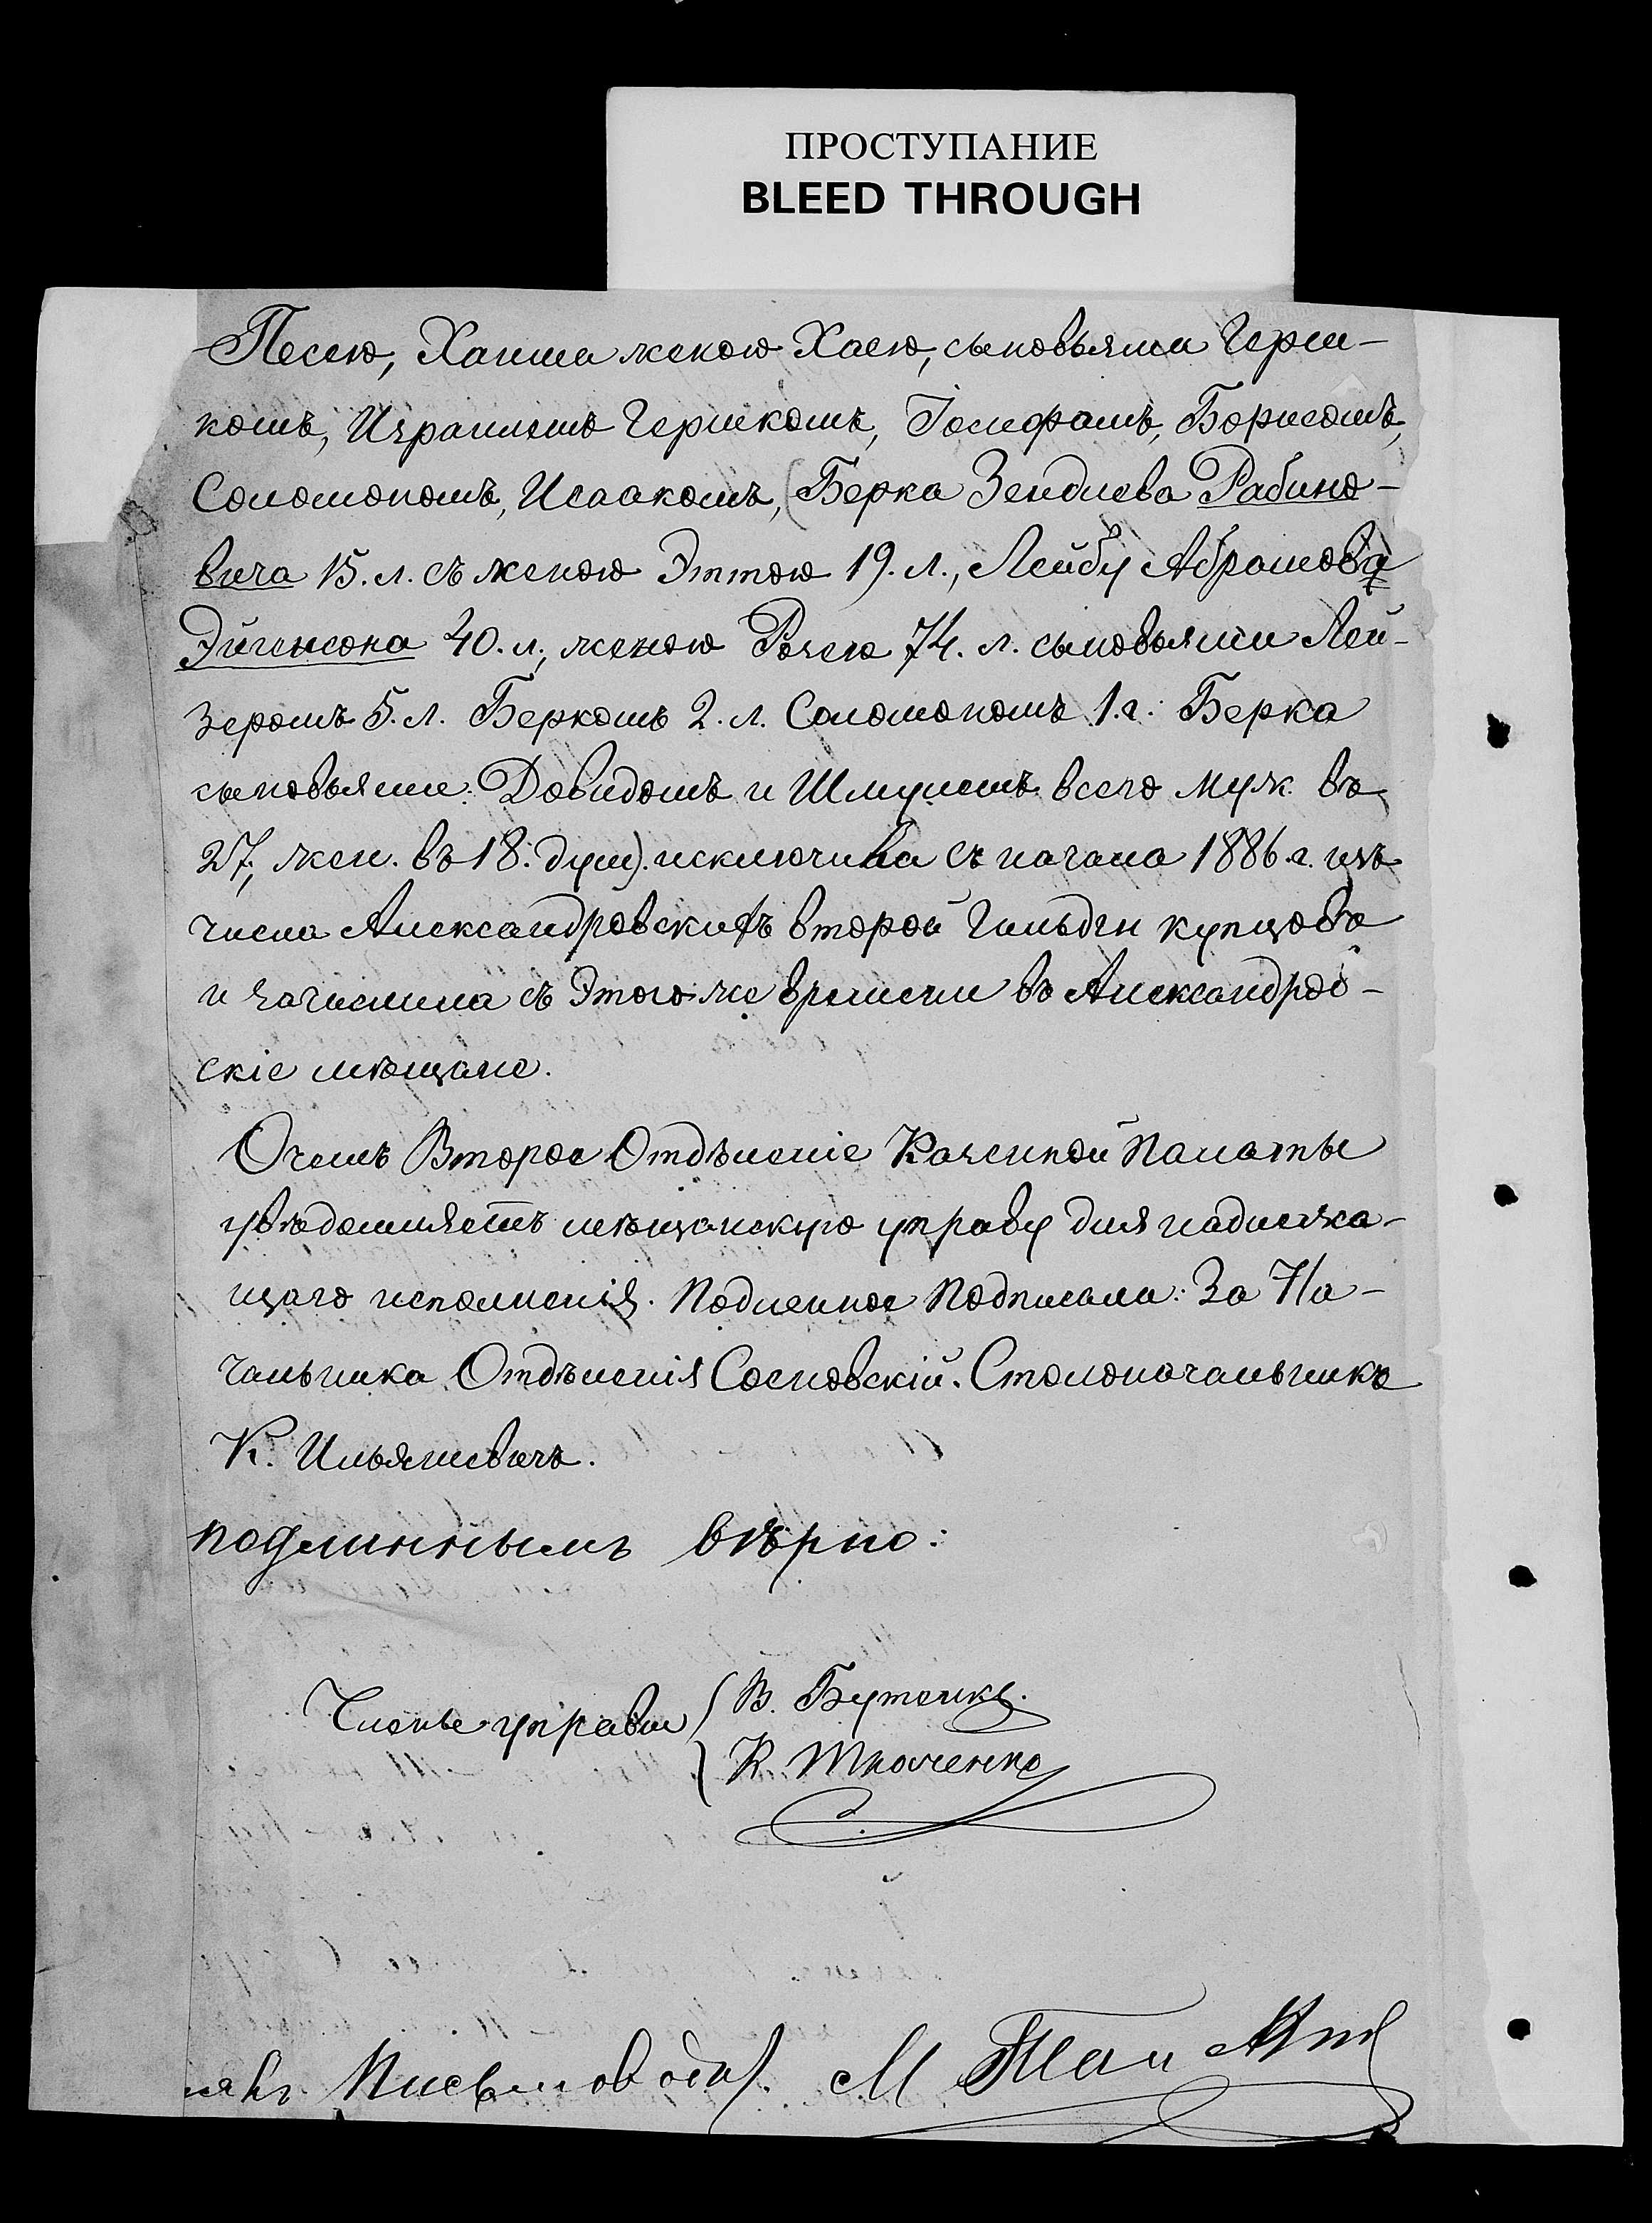 ПРОСТУПАНИЕ
BLEED THROUGH
Песею, Хаима женою Хаею, сыновьями Герш-
комъ, Израилемъ Гершкомъ, Іосифомъ, Борисомъ,
Соломономъ, Исаакомъ, (Берка Зенделева Рабино-
вича 15. л. съ женою Эттою 19. л., Лейбу Абрамова
Эйгенсона 40. л., женою Розею 74. л. сыновьями Лей-
зеромъ 5. л. Беркомъ 2. л. Соломономъ 1. г. Берка
сыновьями: Довидомъ и Шмулемъ всего муж. въ
27, жен. въ 18. душ). исключила съ начала 1886 г. изъ
числа Александровскихъ второй гильдіи купцовъ
и зачислила съ этого же времени въ Александров-
скіе мѣщане.
О чемъ Второе Отдѣленіе Казенной Палаты
увѣдомляетъ мѣщанскую управу для надлежа-
щаго исполненія. Подлинное подписали: За На-
чальника Отдѣленія Сосновскій. Столоначальникъ
К. Ильяшевичъ.
подлиннымъ вѣрно:
Члены управы { В. Бутенко.
К. Ткаченко
Письмовод. М